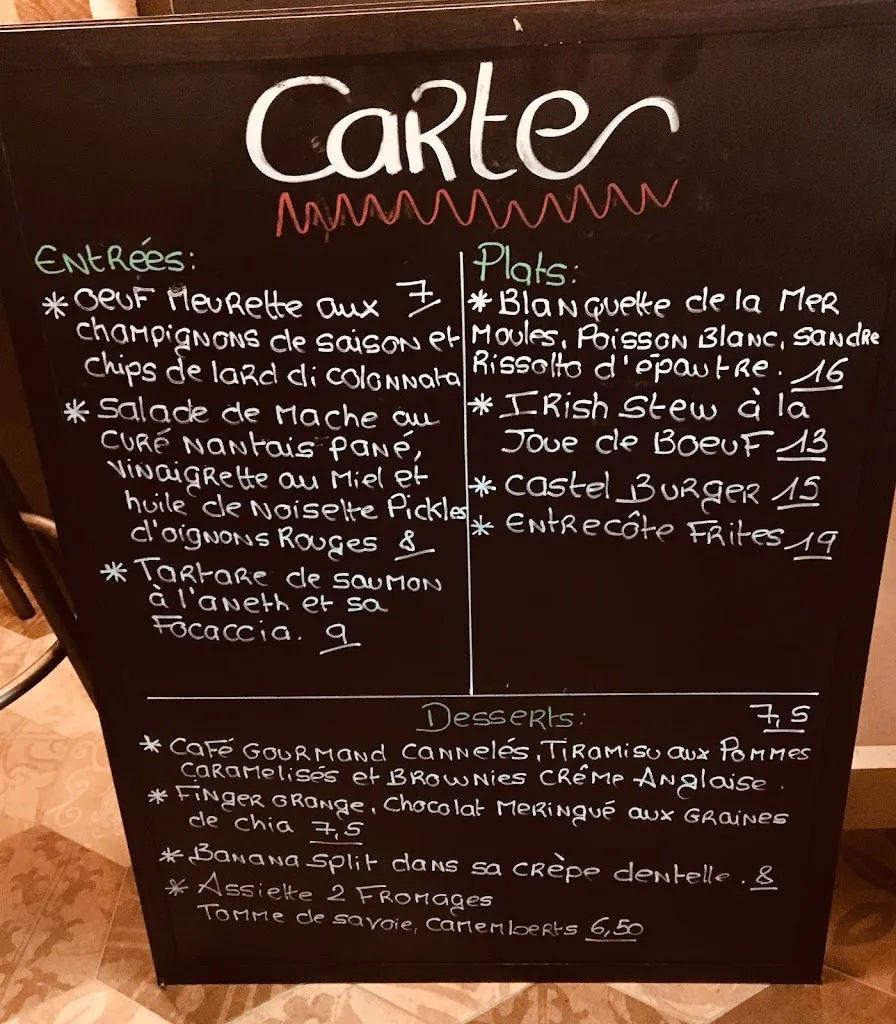 Carte
Entrées:
* Oeuf Meurette aux 7
champignons de saison et
chips de lard di Colonnata
* Salade de Mache au
Curé Nantais pané,
vinaigrette au Miel et
huile de Noisette Pickles
d'oignons Rouges 8
* Tartare de saumon
à l'aneth et sa
Focaccia. 9
Plats:
* Blanquette de la Mer
Moules, Poisson Blanc, Sandre
Rissotto d'épautre. 16
* Irish Stew à la
Joue de Boeuf 13
* Castel Burger 15
* Entrecôte Frites 19
Desserts: 7,5
* Café Gourmand Cannelés, Tiramisu aux Pommes
caramelisés et Brownies Crême Anglaise.
* Finger Orange, Chocolat Meringué aux Graines
de chia 7,5
* Banana Split dans sa crèpe dentelle. 8
* Assiette 2 Fromages
Tomme de savoie, Camemberts 6,50